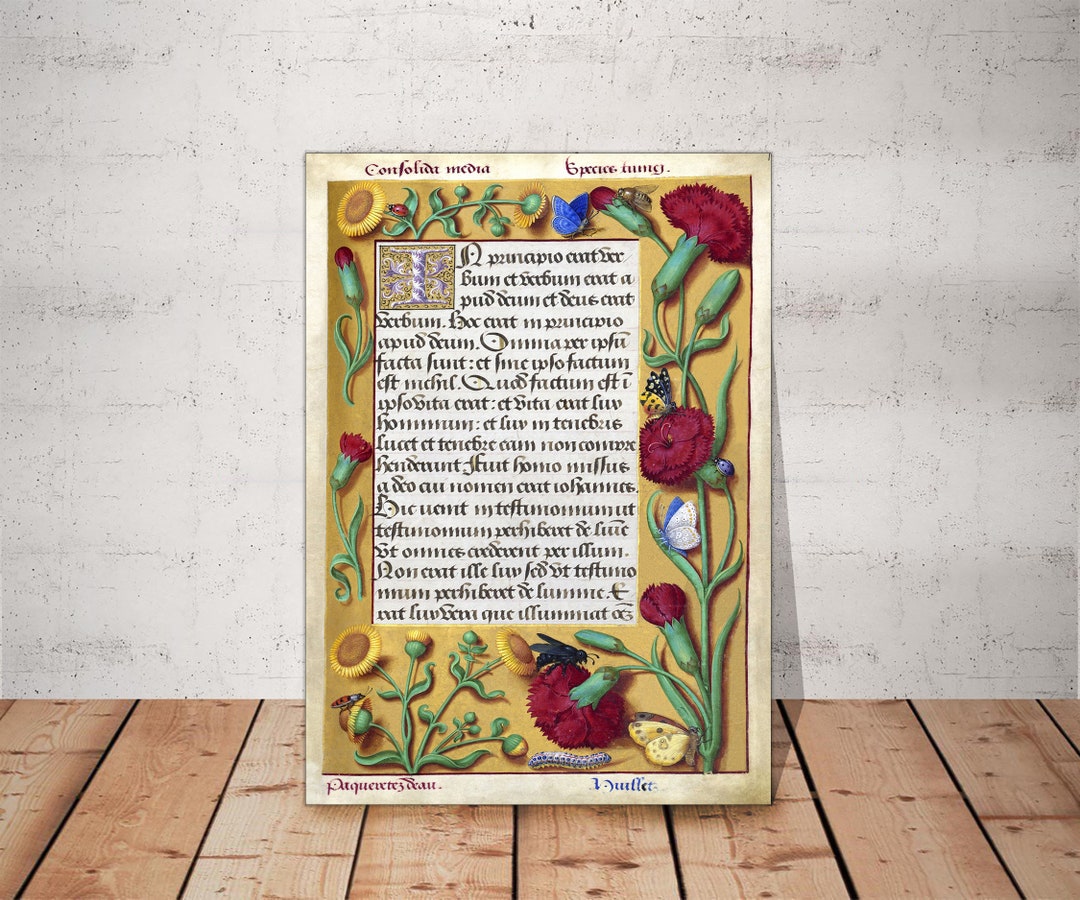 Consolida media
Species tunig.
IN principio erat ver
bum et verbum erat a
pud deum et deus erat
verbum. Hoc erat in principio
apud deum. Omnia per ipsū
facta sunt: et sine ipso factum
est nichil. Quod factum est ī
ipso vita erat: et vita erat lux
hominum: et lux in tenebris
lucet et tenebre eam non compre
henderunt Fuit homo missus
a deo cui nomen erat iohannes.
Hic uenit in testimonium ut
testimonium perhiberet de lumē
Vt omnes crederent per illum.
Non erat ille lux sed vt testimo
nium perhiberet de lumine E
rat lux vera que illuminat oēz
Paqueretez deau.
Muillet.